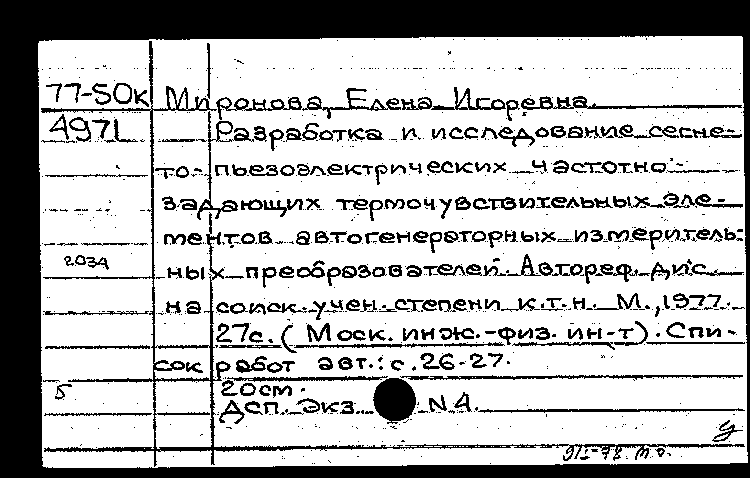 77-50к Миронова, Елена Игоревна.
4971 Разработка и исследование сегне-
то-пьезоэлектрических частотно-
задающих термочувствительных эле-
ментов автогенераторных измеритель-
2034 ных преобразователей. Автореф. дис.
на соиск. учен. степени к.т.н. М., 1977.
27с. (Моск. инж.-физ. ин-т). Спи-
сок работ авт.: с. 26-27.
5 20см.
ДСП. Экз. N 4.